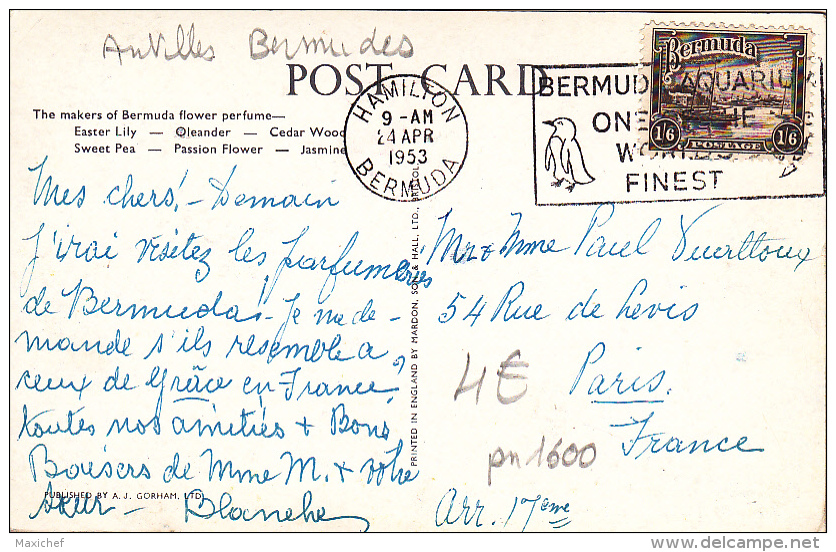 Antilles Bermudes
POST CARD
The makers of Bermuda flower perfume—
Easter Lily — Oleander — Cedar Wood
Sweet Pea — Passion Flower — Jasmine
HAMILTON
9 - AM
24 APR
1953
BERMUDA
BERMUDA AQUARIU
ONE THE
WORLDS
FINEST
Bermuda
1/6 POSTAGE 1/6
Mes chers! - Demain
j'irai visitez les parfumeries
de Bermuda! - Je me de-
mande s'ils resemble a
ceux de Grâce en France?
toutes nos amitiés + Bons
Baisers de Mme M. + votre
sœur - Blanche
PUBLISHED BY A. J. GORHAM, LTD.
PRINTED IN ENGLAND BY MARDON, SON & HALL, LTD., BRISTOL
Mr + Mme Paul
54 Rue de Levis
Paris.
France
Arr. 17eme
4€
pn1600
Maxichef
delcampe.net